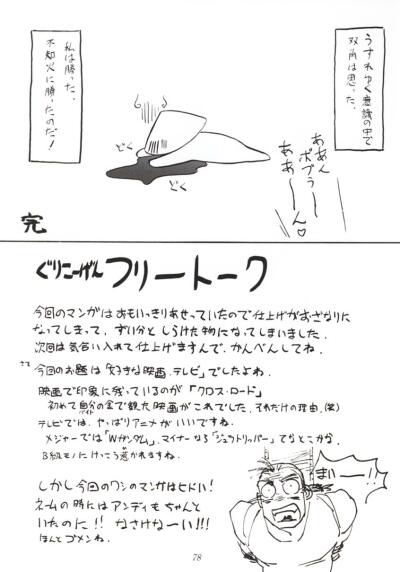 うすれゆく意識の中で
双角は思った、
私は勝った、
不知火に勝ったのだ！
ああん
ボブうー
ああーーん♡
どく
どく
完
ぐりこーげん フリートーク
今回のマンガはおもいっきりあせっていたので仕上げがおざなりに
なってしまって、ずい分としらけた物になってしまいました
次回は気合い入れて仕上げますんで、かんべんしてね。
さて
今回のお題は「好きな映画、テレビ」でしたよね。
映画で印象に残っているのが「クロス・ロード」
初めて自分の金で観た映画がこれでした、それだけの理由、(笑)
バイト
テレビでは、やっぱりアニメがいいですね
メジャーでは「Wガンダム」、マイナーなら「ジュラトリッパー」てなとこかな。
B級モノにけっこう惹かれますね。
しかし今回のワシのマンガはヒドい！
ネームの時にはアンディもちゃんと
いたのに！！なさけなーい!!!
ほんとゴメンね。
まいーー!!
78